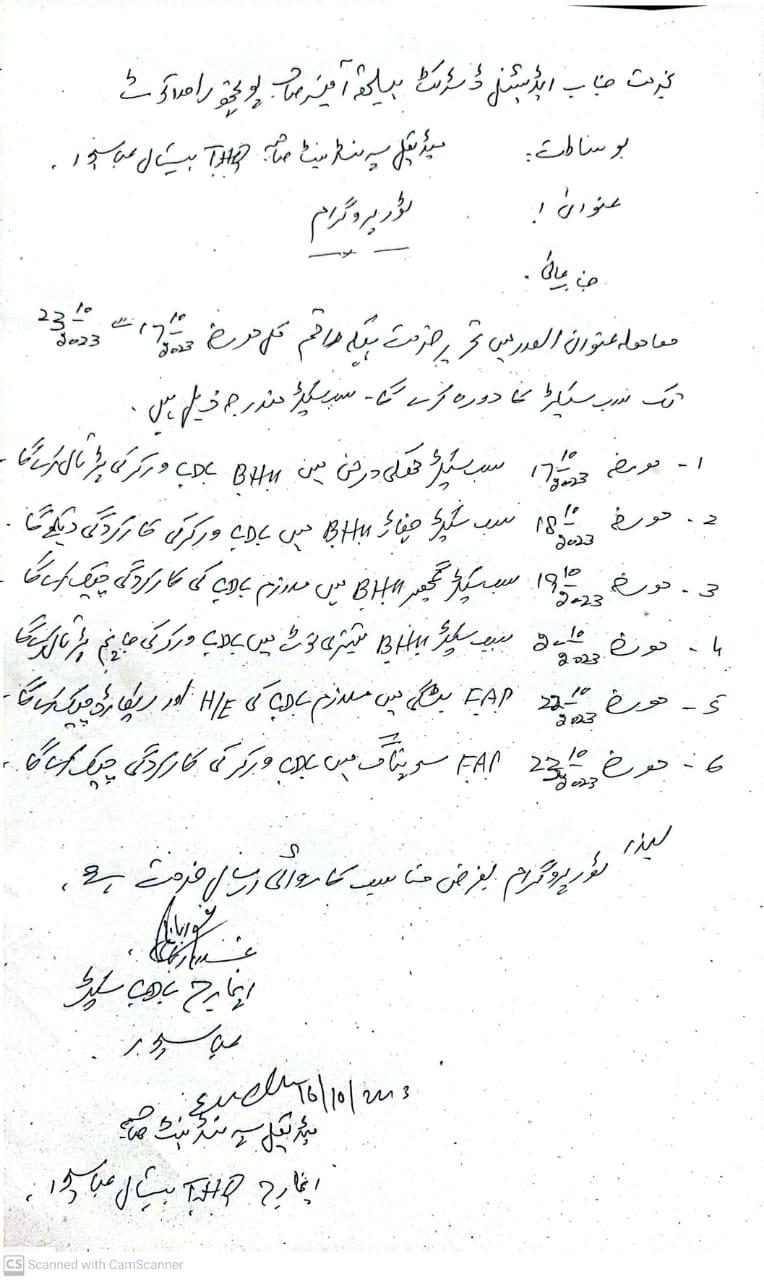 بخدمت جناب ایڈیشنل ڈسٹرکٹ ہیلتھ آفیسر صاحب پونچھ راولاکوٹ
بوساطت: میڈیکل سپرنٹنڈنٹ صاحب THQ ہسپتال عباسپور۔
عنوان! ٹور پروگرام
جناب عالی۔
معاملہ عنوان الصدر میں تحریر خدمت ہیکہ راقم کل مورخہ 17/10/2023 سے 23/10/2023
تک سب سیکٹرز کا دورہ کرے گا۔ سب سیکٹرز مندرجہ ذیل ہیں۔
1- مورخہ 17/10/2023 سب سیکٹر میں BHU CDC ورکر کی پڑتال کرے گا۔
2- مورخہ 18/10/2023 سب سیکٹر BHU میں CDC ورکر کی کارکردگی دیکھے گا۔
3- مورخہ 19/10/2023 سب سیکٹر BHU میں ملازم CDC کی کارکردگی چیک کرے گا
4- مورخہ 20/10/2023 سب سیکٹر BHU میں CDC ورکر کی پڑتال کرے گا
5- مورخہ 22/10/2023 FAP میں ملازم CDC کی H/E اور ریکارڈ چیک کرے گا۔
6- مورخہ 23/10/2023 FAP میں CDC ورکر کی کارکردگی چیک کرے گا۔
لہذا ٹور پروگرام بغرض مناسب کاروائی ارسال خدمت ہے۔
انچارج CDC سیکٹر
عباسپور۔
16/10/2023
میڈیکل سپرنٹنڈنٹ صاحب
انچارج THQ ہسپتال عباسپور۔
CS Scanned with CamScanner